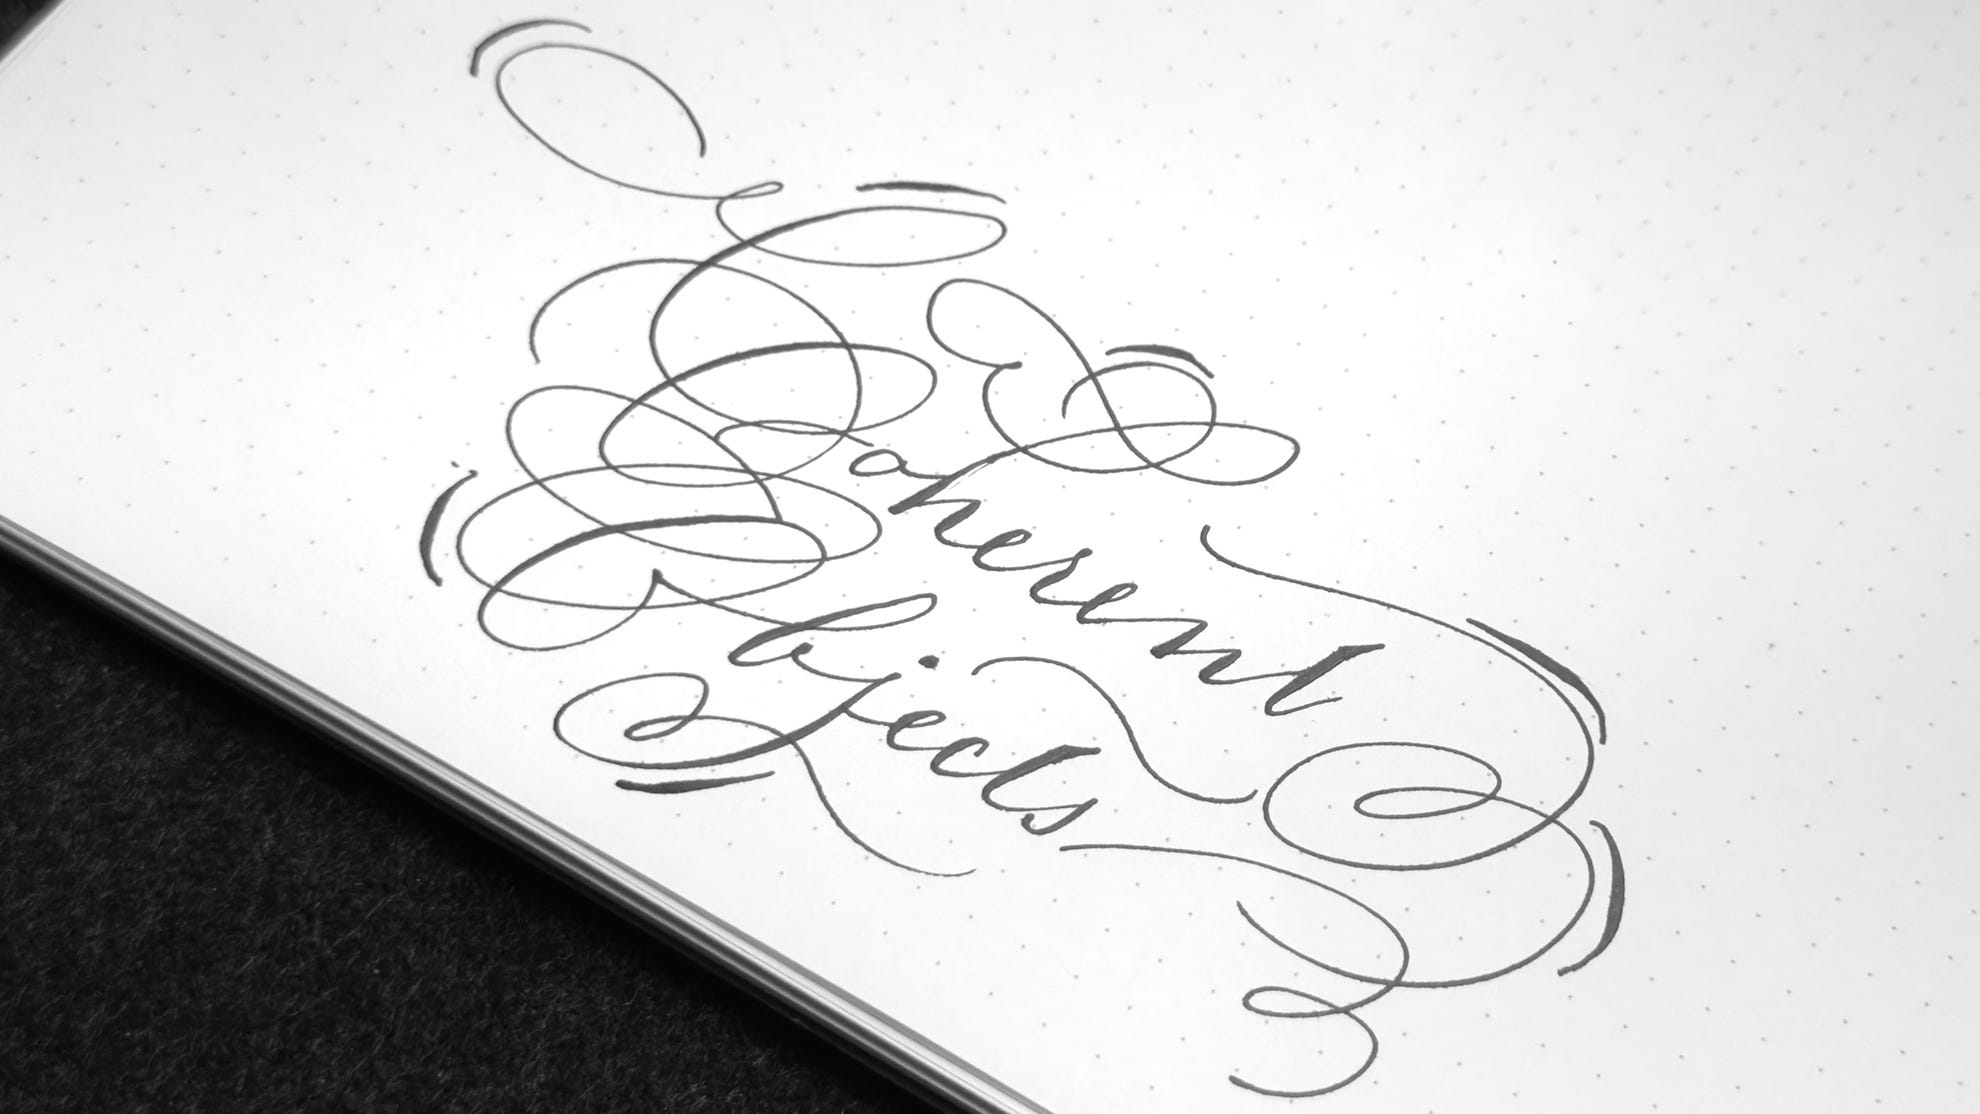 Coherent
Objects